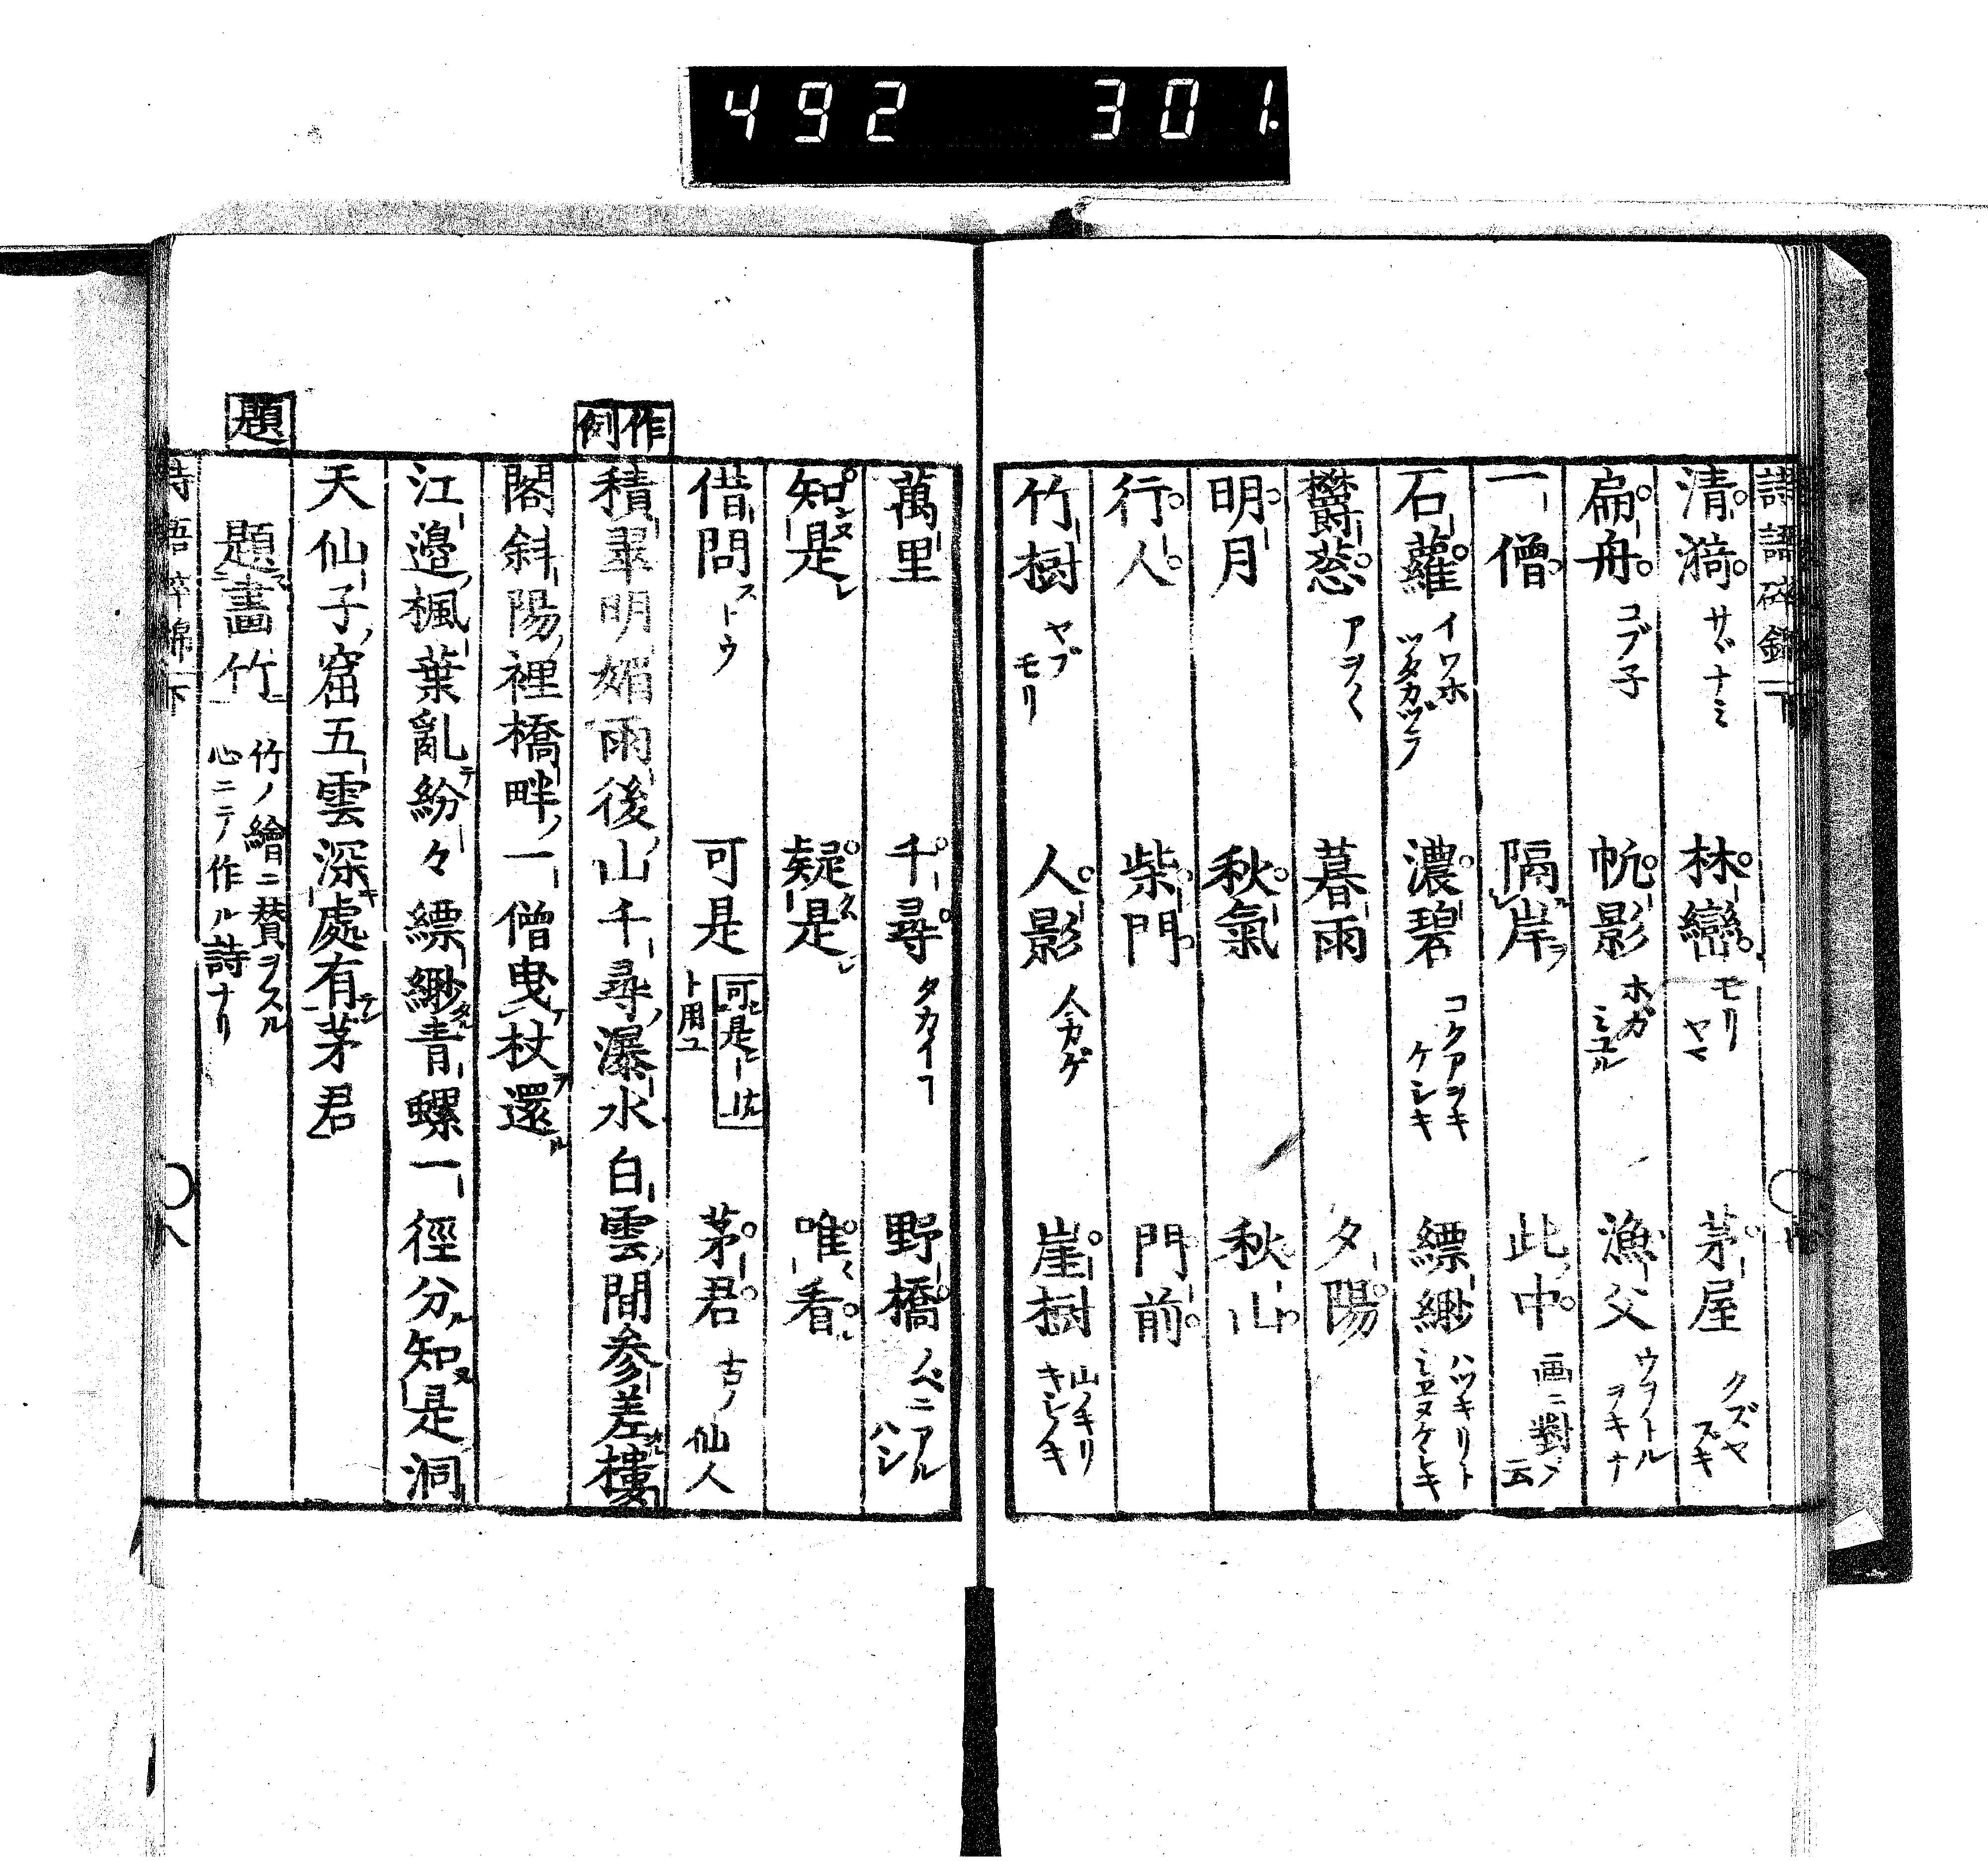 492 301
詩語碎錦 下
清漪 サヾナミ 林巒 モリ ヤマ 茅屋 クズヤ ズキ
扁舟 コブ子 帆影 ホガ ミユル 漁父 ウヲトル ヲキナ
一僧 隔岸ヲ 此中 画ニ對シ 云
石蘿 イワホ ツタカヅラ 濃碧 コクアヲキ ケシキ 縹緲 ハツキリト ミエヌケシキ
欝葱 アヲ〱 暮雨 夕陽
明月 秋氣 秋山
行人 柴門 門前
竹樹 ヤブ モリ 人影 人カゲ 崖樹 山ノキリ キシノキ
萬里 千尋 タカイヿ 野橋 ノベニアル ハシ
知是 疑是 唯看
借問 ストウ 可是 ト用ユ 茅君 古ノ仙人
作例
積翠明媚雨後山千尋瀑水白雲間参差樓
閣斜陽裡橋畔一僧曳杖還
江邉楓葉亂紛々縹緲青螺一徑分知是洞
天仙子窟五雲深處有茅君
題
題畫竹 竹ノ繪ニ賛ヲスル 心ニテ作ル詩ナリ
詩語碎錦 下 八